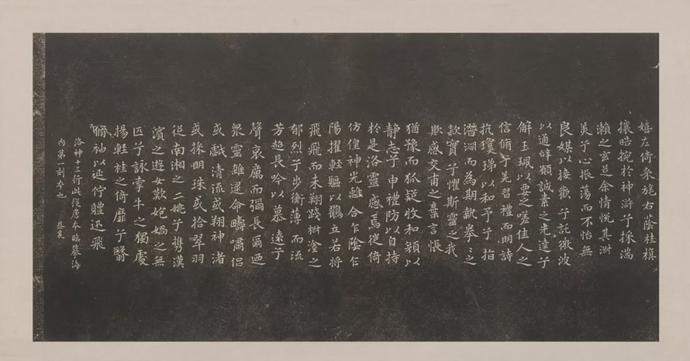 嬉左倚采旄右蔭桂旗
攘皓捥於神滸兮採湍
瀨之玄芝余情悅其淑
美兮心振蕩而不怡無
良媒以接歡兮託微波
以通辭願誠素之先達兮
解玉珮以要之嗟佳人之
信脩兮羌習禮而明詩
抗瓊珶以和予兮指
潛淵而為期執拳拳之
款實兮懼斯靈之我
欺感交甫之棄言悵
猶豫而狐疑收和顏以
靜志兮申禮防以自持
於是洛靈感焉徙倚
仿偟神光離合乍陰乍
陽擢輕軀以鶴立若將
飛飛而未翔踐椒塗之
郁烈兮步衡薄而流
芳超長吟以慕遠兮
聲哀厲而彌長爾迺
眾靈雜遝命疇嘯侶
或戲清流或翔神渚
或採明珠或拾翠羽
從南湘之二姚兮攜漢
濱之遊女歎炮媧之無
匹兮詠牽牛之獨處
揚輕袿之倚靡兮翳
脩袖以延佇體迅飛
洛神十三行此從唐本臨摹海
內第一刻本也